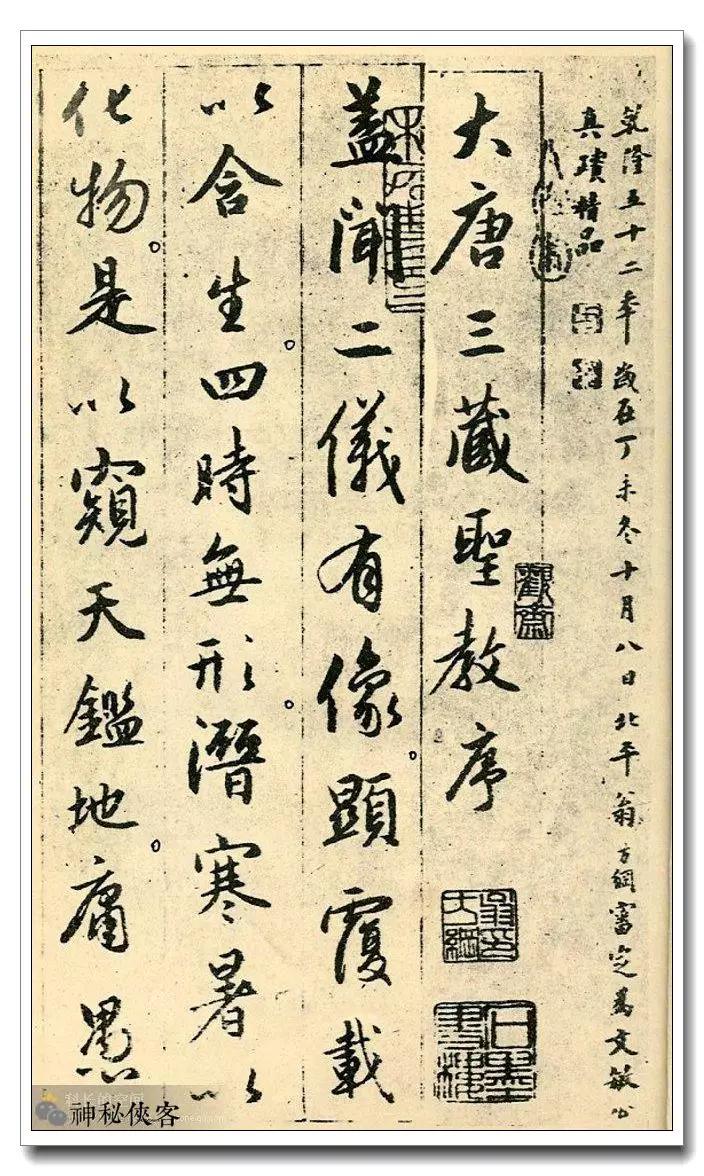 乾隆五十二年歲在丁未冬十月八日北平翁方綱審定爲文敏公
真蹟精品
大唐三藏聖教序
蓋聞二儀有像。顯覆載
以含生。四時無形。潛寒暑以
化物。是以窺天鑑地。庸愚
觀齋
翁方綱
石墨書樓
神秘俠客